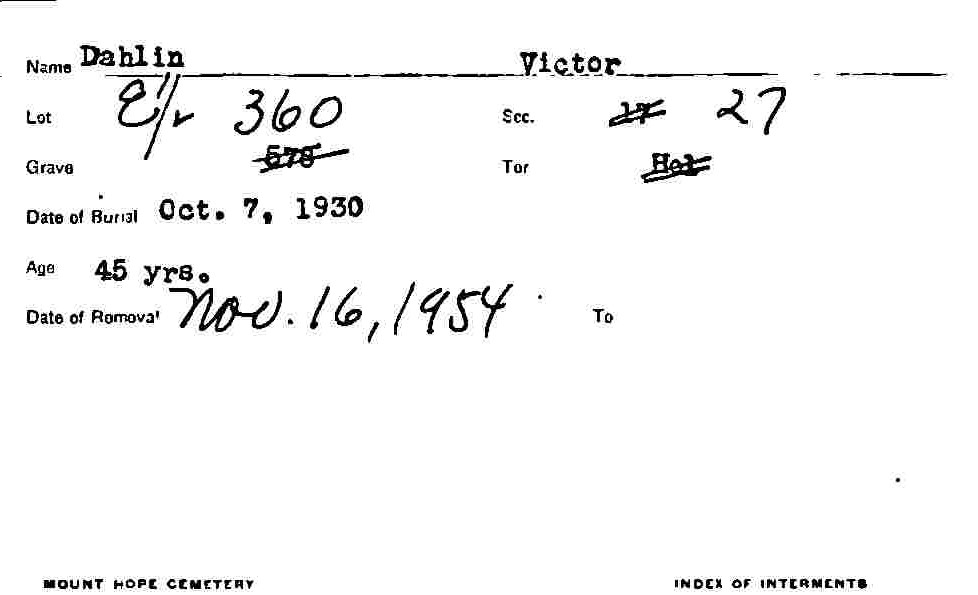 Name Dahlin Victor
Lot E 1/2 360 Sec. 17 27
Grave 578 Ter Hol
Date of Burial Oct. 7, 1930
Age 45 yrs.
Date of Removal Nov. 16, 1954 To
MOUNT HOPE CEMETERY INDEX OF INTERMENTS